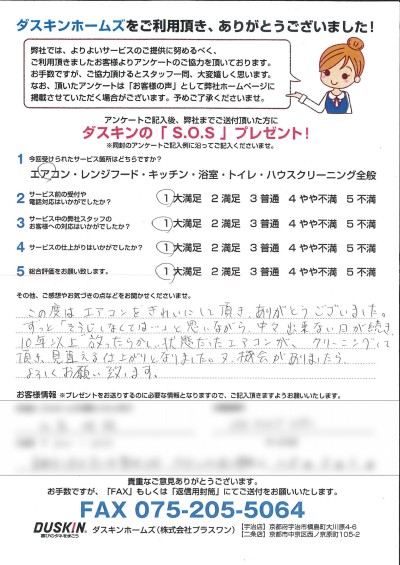 ダスキンホームズをご利用頂き、ありがとうございました！
弊社では、よりよいサービスのご提供に努めるべく、
ご利用頂きましたお客様よりアンケートのご協力を頂いております。
お手数ですが、ご協力頂けるとスタッフ一同、大変嬉しく思います。
なお、頂いたアンケートは「お客様の声」として弊社ホームページに
掲載させていただく場合がございます。予めご了承くださいませ。
アンケートご記入後、弊社までご送付頂いた方に
ダスキンの「S.O.S」プレゼント！
※同封のアンケートご記入例に沿ってご記入くださいませ。
1 今回受けられたサービス箇所はどちらですか？
エアコン・レンジフード・キッチン・浴室・トイレ・ハウスクリーニング全般
2 サービス前の受付や
電話対応はいかがでしたか？ 1 大満足 2 満足 3 普通 4 やや不満 5 不満
3 サービス中の弊社スタッフの
お客様への対応はいかがでしたか？ 1 大満足 2 満足 3 普通 4 やや不満 5 不満
4 サービスの仕上がりはいかがでしたか？ 1 大満足 2 満足 3 普通 4 やや不満 5 不満
5 総合評価をお願い致します。 1 大満足 2 満足 3 普通 4 やや不満 5 不満
その他、ご感想やお気づきの点などをお聞かせくださいませ。
この度は エアコンを きれいにして頂き、ありがとうございました。
ずっと「そうじしなくては…」と思いながら、中々 出来ない日が続き、
10年以上 放ったらかし状態だったエアコンが、クリーニングして
頂き、見違える仕上がりとなりました。又、機会がありましたら、
よろしくお願い致します。
お客様情報 ※プレゼントをお送りするのに必要な情報となりますので、ご記入頂きますようお願いいたします。
貴重なご意見ありがとうございます。
お手数ですが、「FAX」もしくは「返信用封筒」にてご送付をお願いいたします。
FAX 075-205-5064
DUSKIN 喜びのタネをまこう
ダスキンホームズ（株式会社プラスワン）
【宇治店】京都府宇治市槇島町大川原4-6
【二条店】京都市中京区西ノ京原町105-2